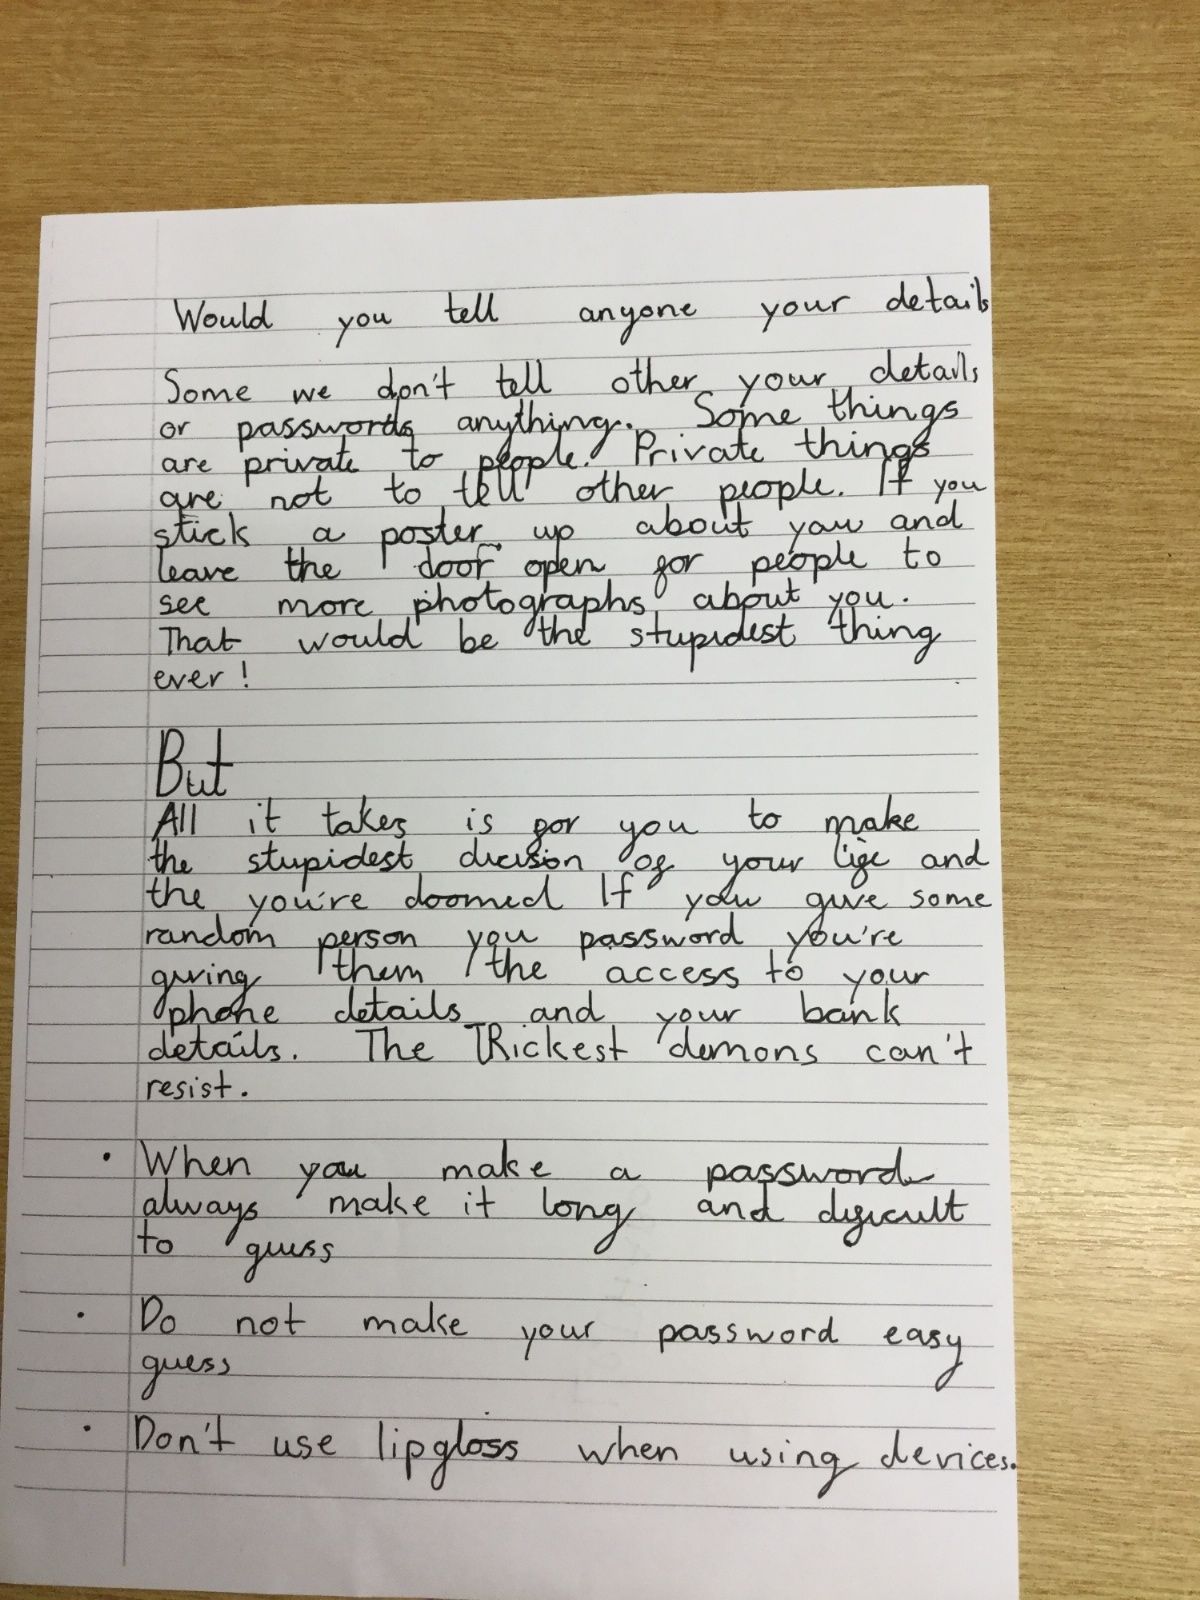 Would you tell anyone your details
Some we don't tell other your details
or passwords anything. Some things
are private to people. Private things
are not to tell other people. If you
stick a poster up about you and
leave the door open for people to
see more photographs about you.
That would be the stupidest thing
ever!
But
All it takes is for you to make
the stupidest dicision of your life and
the you're doomed If you give some
random person you password you're
giving them the access to your
phone details and your bank
details. The TRickest demons can't
resist.
• When you make a password
always make it long and difficult
to guess
• Do not make your password easy
guess
• Don't use lipgloss when using devices.